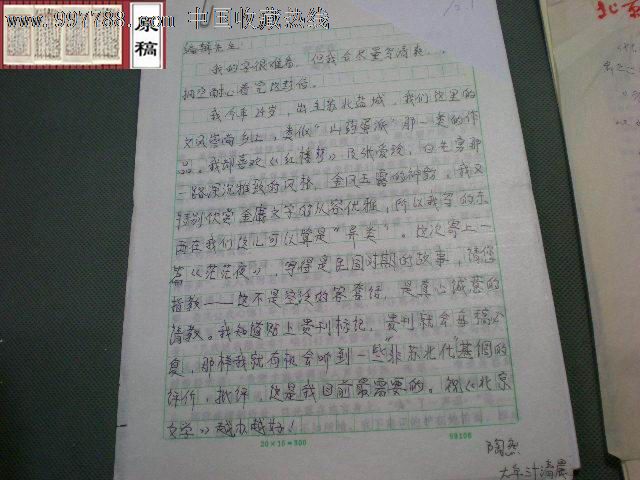 www.997788.com 中国收藏热线
原稿
编辑先生:
我的字很难看,但我会尽量写清爽,
拥耐心看完这封信。
我今年24岁,出生苏北盐城,我们这里的
文风崇尚乡土,类似"山药蛋派"那一类的作
品。我却喜欢《红楼梦》及张爱玲,白先勇那
一路深沉雅致的风格,金风玉露的神韵,我又
特别欣赏金庸文字的从容优雅,所以我写的东
西在我们这儿可以算是"异类"。这次寄上一
篇《茫茫夜》,写得是民国时期的故事,请您
指教——这不是空泛的客套话,是真心诚意的
请教。我知道贴上贵刊标记,贵刊就会每稿必
复,那样我就有机会听到一些"非苏北化"基调的
评价,批评,这是我目前最需要的。祝《北京
文学》越办越好!
20×15=300
陶然
大年三十清晨
北京